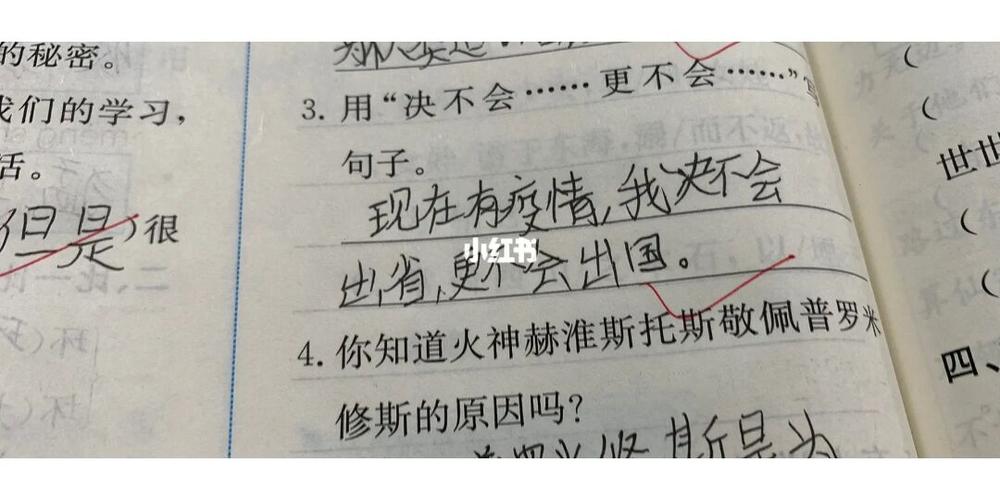 的秘密。
我们的学习，
活。
但是）很
3. 用“决不会……更不会……”写
句子。
现在有疫情,我决不会
出省,更不会出国。
小红书
4. 你知道火神赫淮斯托斯敬佩普罗米
修斯的原因吗?
斯是为
世世
四、